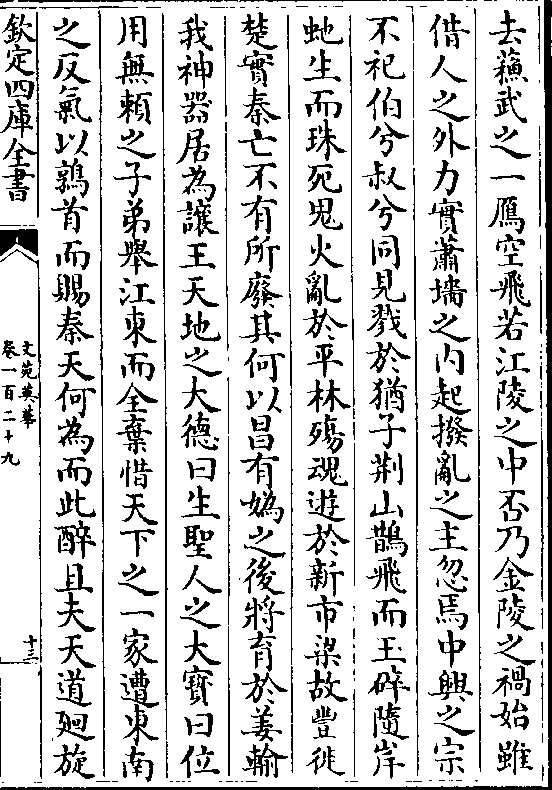 去蘓武之一鴈空飛若江陵之中否乃金陵之禍始雖
借人之外力實蕭墻之内起撥亂之主忽焉中興之宗
不祀伯兮叔兮同見戮於猶子荆山鵲飛而玉碎隨岸
虵生而珠死鬼火亂於平林殤魂遊於新市梁故豐徙
楚實秦亡不有所廢其何以昌有媯之後將育於姜輸
我神器居為讓王天地之大德曰生聖人之大寳曰位
用無賴之子弟舉江東而全棄惜天下之一家遭東南
之反氣以鶉首而賜秦天何為而此醉且夫天道廻旋
欽定四庫全書
文苑英華
卷一百二十九
十三